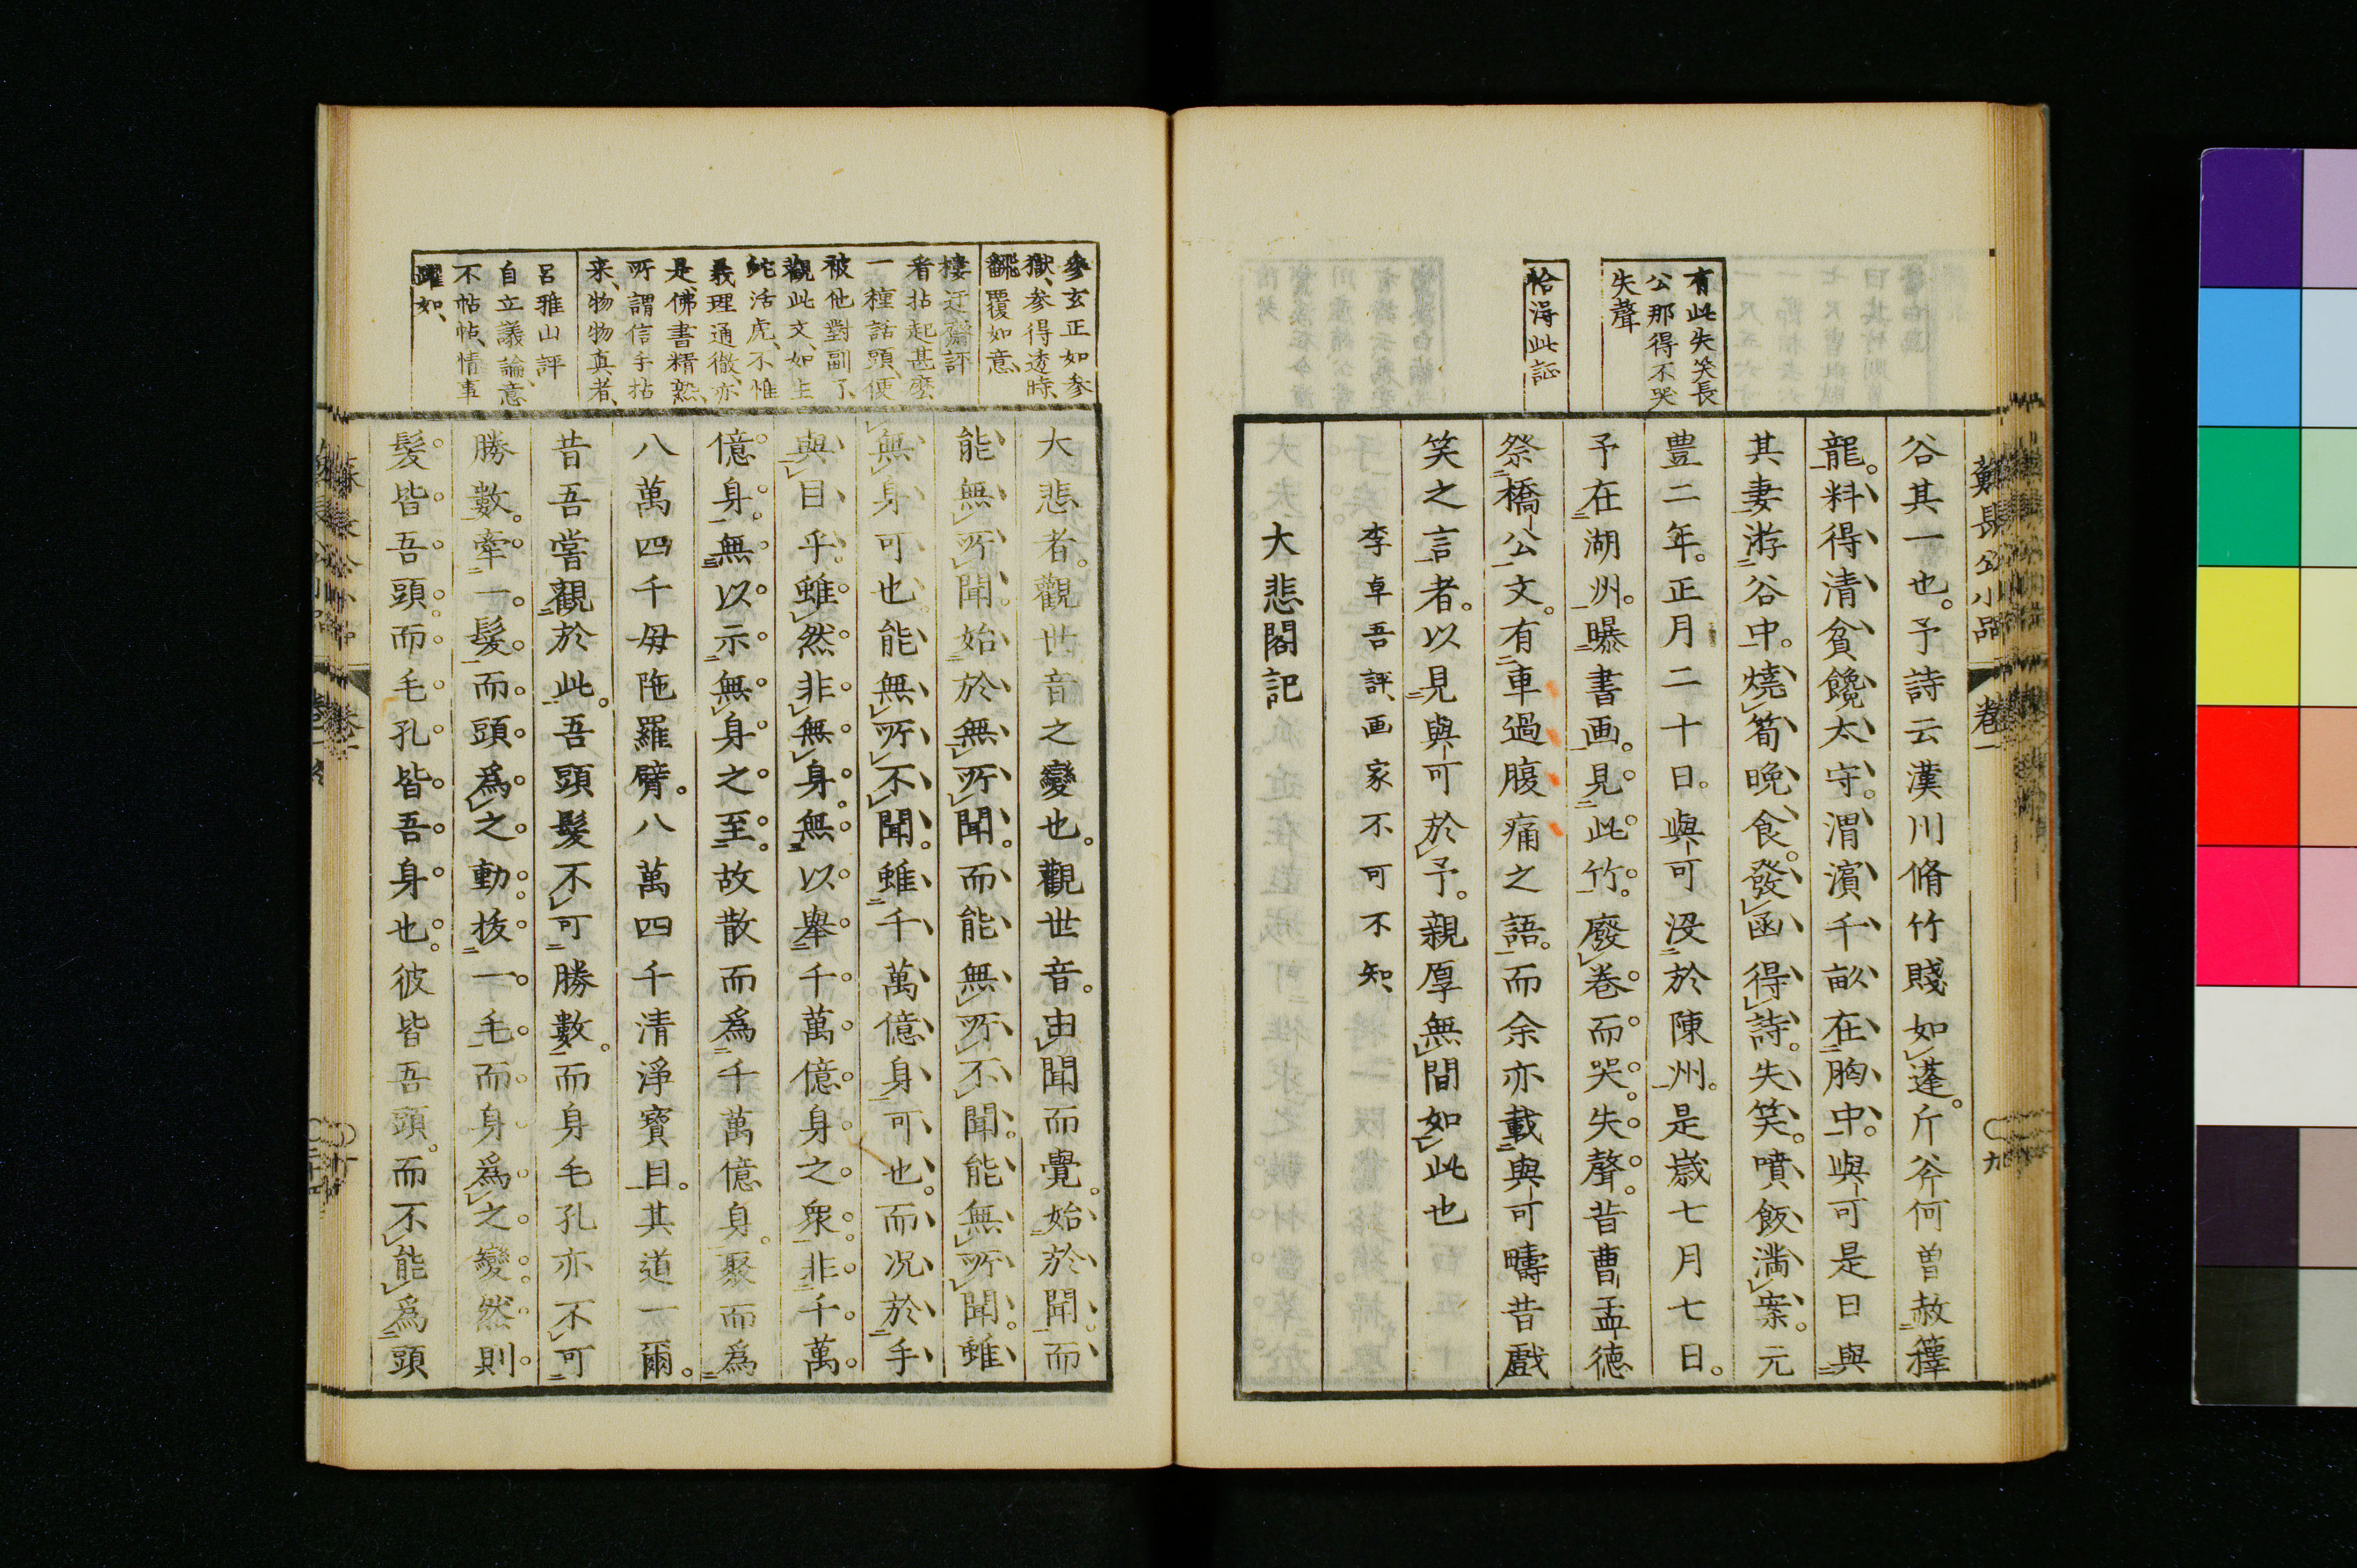 蘇長公小品
卷一
九
有此失笑長
公那得不哭
失聲
恰淂此証
谷其一也予詩云漢川脩竹賤如蓬斤斧何曽赦籜
龍料得清貧饞太守渭濵千畝在胸中與可是日與
其妻游谷中燒筍晚食發函得詩失笑噴飯滿案元
豊二年正月二十日與可没於陳州是歲七月七日
予在湖州曝書画見此竹廢卷而哭失聲昔曹孟德
祭橋公文有車過腹痛之語而余亦載與可疇昔戲
笑之言者以見與可於予親厚無間如此也
李卓吾評画家不可不知
大悲閣記
參玄正如参
獄参得透時
飜覆如意
樓迂齋評
看拈起甚麼
一種話頭便
被他對副了
觀此文如生
蛇活虎不惟
義理通徹亦
是佛書精熟
所謂信手拈
来物物真者
呂雅山評
自立議論意
不帖帖情事
躍如
大悲者觀世音之變也觀世音由聞而覺始於聞而
能無所聞始於無所聞而能無所不聞能無所聞雖
無身可也能無所不聞雖千萬億身可也而况於手
與目乎雖然非無身無以舉千萬億身之衆非千萬
億身無以示無身之至故散而為千萬億身聚而為
八萬四千毋陁羅臂八萬四千清淨寳目其道一爾
昔吾嘗觀於此吾頭髮不可勝數而身毛孔亦不可
勝數牽一髮而頭爲之動拔一毛而身爲之變然則
髮皆吾頭而毛孔皆吾身也彼皆吾頭而不能爲頭